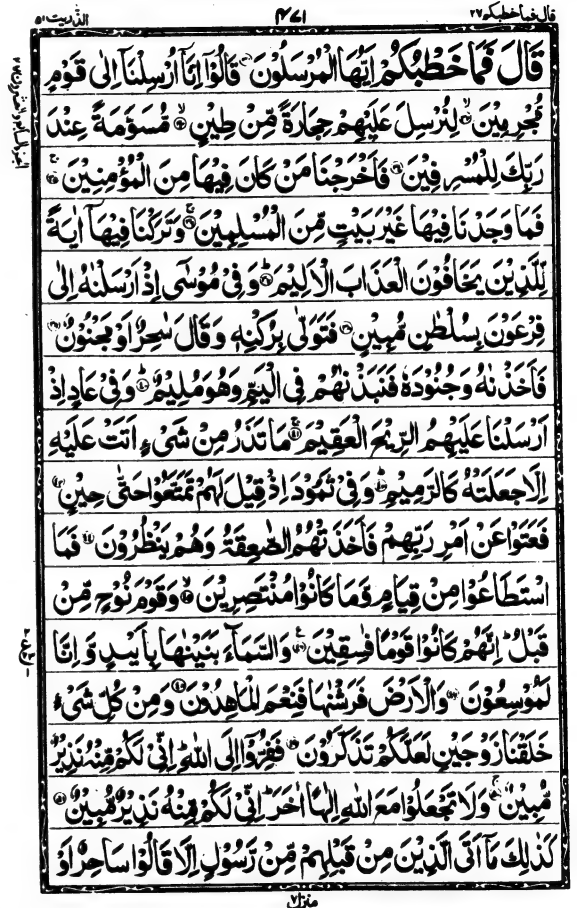 قال فما خطبكم ٢٧
٤٧١
الذّٰریٰت ٥١
قَالَ فَمَا خَطْبُكُمْ اَیُّهَا الْمُرْسَلُوْنَ ۝٣١ قَالُوْۤا اِنَّاۤ اُرْسِلْنَاۤ اِلٰی قَوْمٍ
مُّجْرِمِیْنَ ۝٣٢ لِنُرْسِلَ عَلَیْهِمْ حِجَارَةً مِّنْ طِیْنٍ ۝٣٣ مُّسَوَّمَةً عِنْدَ
رَبِّكَ لِلْمُسْرِفِیْنَ ۝٣٤ فَاَخْرَجْنَا مَنْ كَانَ فِیْهَا مِنَ الْمُؤْمِنِیْنَ ۝٣٥
فَمَا وَجَدْنَا فِیْهَا غَیْرَ بَیْتٍ مِّنَ الْمُسْلِمِیْنَ ۝٣٦ وَتَرَكْنَا فِیْهَاۤ اٰیَةً
لِّلَّذِیْنَ یَخَافُوْنَ الْعَذَابَ الْاَلِیْمَ ۝٣٧ وَفِیْ مُوْسٰۤی اِذْ اَرْسَلْنٰهُ اِلٰی
فِرْعَوْنَ بِسُلْطٰنٍ مُّبِیْنٍ ۝٣٨ فَتَوَلّٰی بِرُكْنِهٖ وَقَالَ سٰحِرٌ اَوْ مَجْنُوْنٌ ۝٣٩
فَاَخَذْنٰهُ وَجُنُوْدَهٗ فَنَبَذْنٰهُمْ فِی الْیَمِّ وَهُوَ مُلِیْمٌ ۝٤٠ وَفِیْ عَادٍ اِذْ
اَرْسَلْنَا عَلَیْهِمُ الرِّیْحَ الْعَقِیْمَ ۝٤١ مَا تَذَرُ مِنْ شَیْءٍ اَتَتْ عَلَیْهِ
اِلَّا جَعَلَتْهُ كَالرَّمِیْمِ ۝٤٢ وَفِیْ ثَمُوْدَ اِذْ قِیْلَ لَهُمْ تَمَتَّعُوْا حَتّٰی حِیْنٍ ۝٤٣
فَعَتَوْا عَنْ اَمْرِ رَبِّهِمْ فَاَخَذَتْهُمُ الصّٰعِقَةُ وَهُمْ یَنْظُرُوْنَ ۝٤٤ فَمَا
اسْتَطَاعُوْا مِنْ قِیَامٍ وَّمَا كَانُوْا مُنْتَصِرِیْنَ ۝٤٥ وَقَوْمَ نُوْحٍ مِّنْ
قَبْلُ ؕ اِنَّهُمْ كَانُوْا قَوْمًا فٰسِقِیْنَ ۝٤٦ وَالسَّمَآءَ بَنَیْنٰهَا بِاَیْىدٍ وَّاِنَّا
لَمُوْسِعُوْنَ ۝٤٧ وَالْاَرْضَ فَرَشْنٰهَا فَنِعْمَ الْمَاهِدُوْنَ ۝٤٨ وَمِنْ كُلِّ شَیْءٍ
خَلَقْنَا زَوْجَیْنِ لَعَلَّكُمْ تَذَكَّرُوْنَ ۝٤٩ فَفِرُّوْۤا اِلَی اللّٰهِ ؕ اِنِّیْ لَكُمْ مِّنْهُ نَذِیْرٌ
مُّبِیْنٌ ۝٥٠ وَلَا تَجْعَلُوْا مَعَ اللّٰهِ اِلٰهًا اٰخَرَ ؕ اِنِّیْ لَكُمْ مِّنْهُ نَذِیْرٌ مُّبِیْنٌ ۝٥١
كَذٰلِكَ مَاۤ اَتَی الَّذِیْنَ مِنْ قَبْلِهِمْ مِّنْ رَّسُوْلٍ اِلَّا قَالُوْا سَاحِرٌ اَوْ
منزل ٧